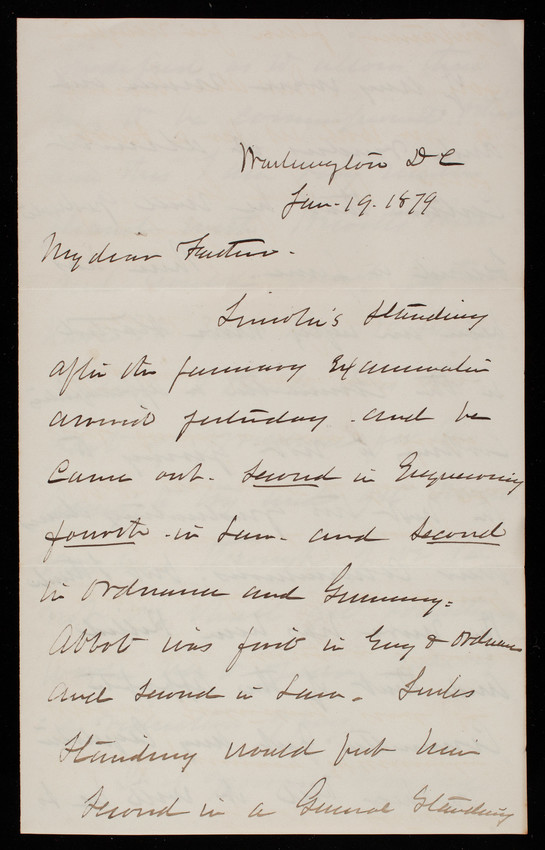 Washington D C
Jan. 19. 1879
My dear Father.
Lincoln's standing
after the January Examination
arrived yesterday. and he
came out. Second in Engineering
fourth. in Law. and Second
in Ordnance and Gunnery.
Abbot was first in Eng & Ordnance
and second in Law.
standing would put him
Second in a General Standing